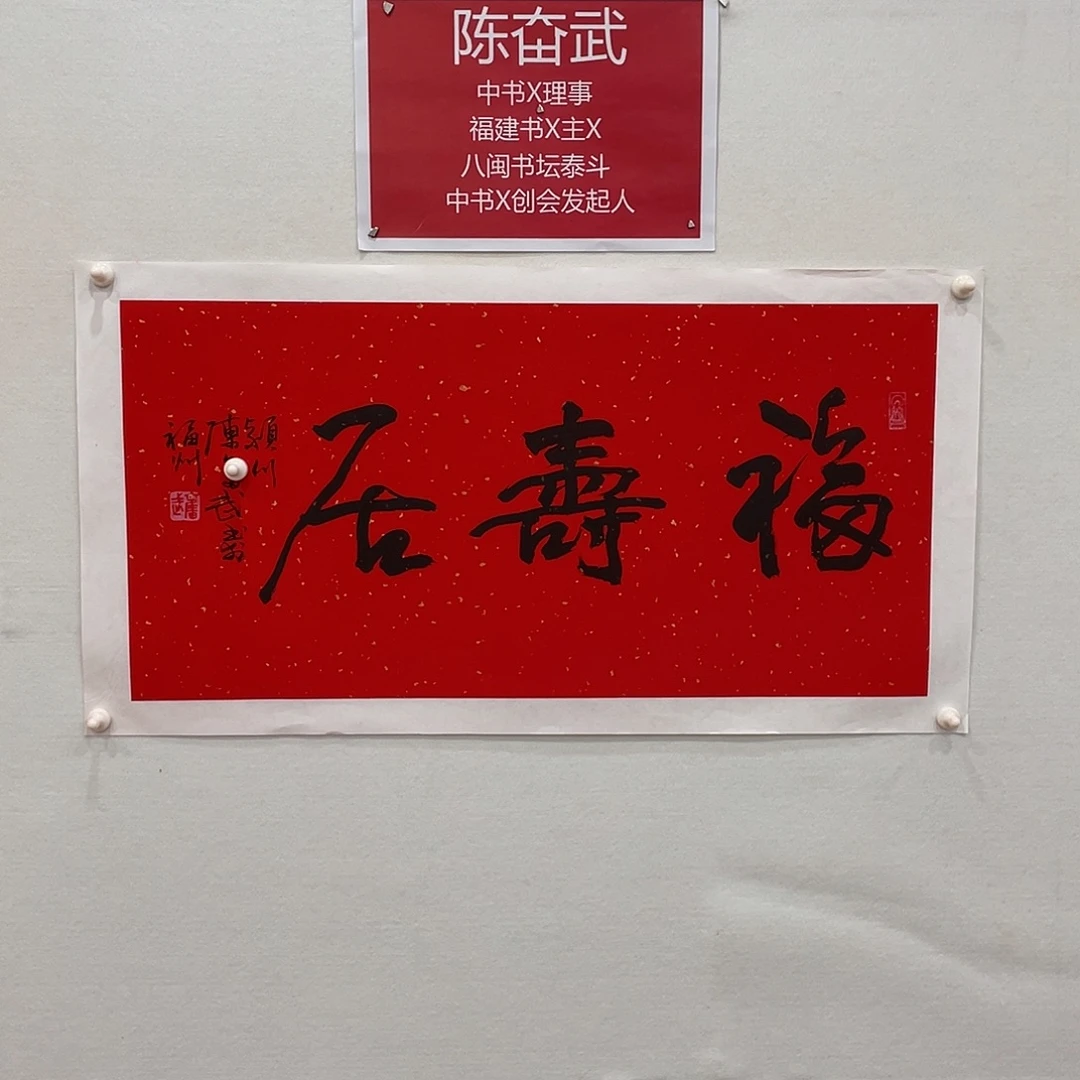 陈奋武
中书X理事
福建书X主X
八闽书坛泰斗
中书X创会发起人
福壽居
颖川
陳奮武書於
福州